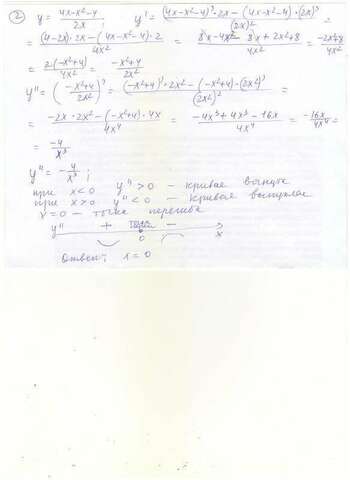 ② y = (4x-x²-4)/2x ; y' = ((4x-x²-4)'·2x - (4x-x²-4)·(2x)')/(2x)² =
= ((4-2x)·2x - (4x-x²-4)·2)/4x² = (8x-4x² - 8x+2x²+8)/4x² = (-2x²+8)/4x² =
= 2·(-x²+4)/4x² = (-x²+4)/2x²
y'' = ((-x²+4)/2x²)' = ((-x²+4)'·2x² - (-x²+4)·(2x²)')/(2x²)² =
= (-2x·2x² - (-x²+4)·4x)/4x⁴ = (-4x³+4x³-16x)/4x⁴ = -16x/4x⁴ =
= -4/x³
y'' = -4/x³ ;
при x<0 y''>0 - кривая вогнута
при x>0 y''<0 - кривая выпуклая
x=0 - точка перегиба
y'' + точка перегиба -
0 x
Ответ: x=0